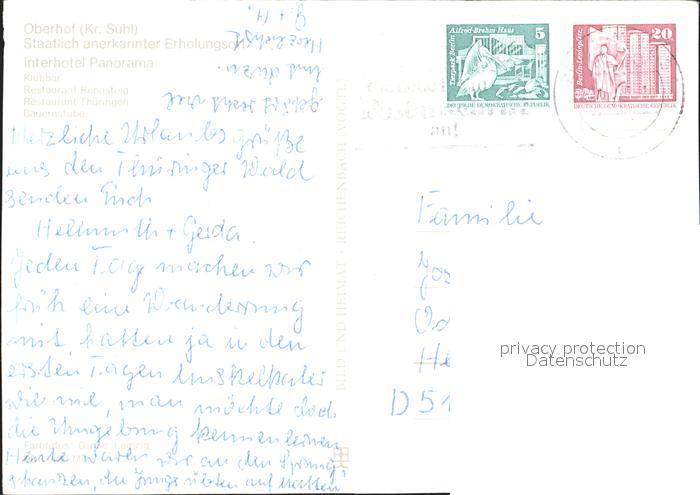 Oberhof (Kr. Suhl)
Staatlich anerkannter Erholungsort
Interhotel Panorama
Klubbar
Restaurant Rennsteig
Restaurant Thüringen
Bauernstube
Herzliche Urlaubsgrüße
aus den Thüringer Wald
senden Euch
Hellmuth + Gerda.
Jeden Tag machen wir
früh eine Wanderung
mit hatten ja in den
ersten Tagen Muskelkater
wie nie, man möchte doch
die Umgebung kennenlernen
Heute waren wir an den Sprung
schanzen, die Jungs übten auf Matten
gehört schon viel
und dazu
Herzlichst
G + H.
BILD UND HEIMAT · REICHENBACH (VOGTL)
Alfred-Brehm-Haus 5
Tierpark Berlin
DEUTSCHE DEMOKRATISCHE REPUBLIK
20
Berlin-Leninplatz
DEUTSCHE DEMOKRATISCHE REPUBLIK
an!
Familie
Jos
Od
He
D 51
privacy protection
Datenschutz